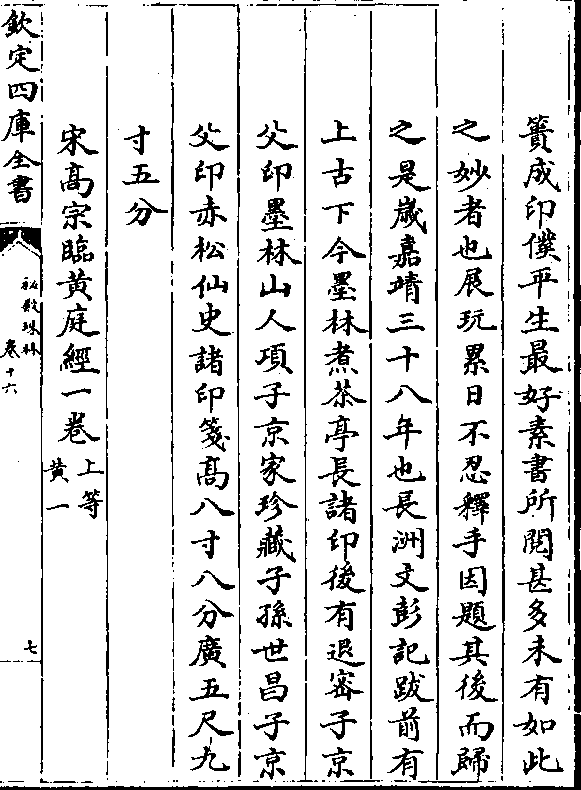 蕢成印僕平生最好素書所閱甚多未有如此
之妙者也展玩累日不忍釋手因題其後而歸
之是嵗嘉靖三十八年也長洲文彭記跋前有
上古下今墨林煮茶亭長諸印後有退宻子京
父印墨林山人項子京家珍藏子孫世昌子京
父印赤松仙史諸印箋髙八寸八分廣五尺九
寸五分
宋髙宗臨黄庭經一卷上等
黄一
欽定四庫全書
秘殿珠林
卷十六
七